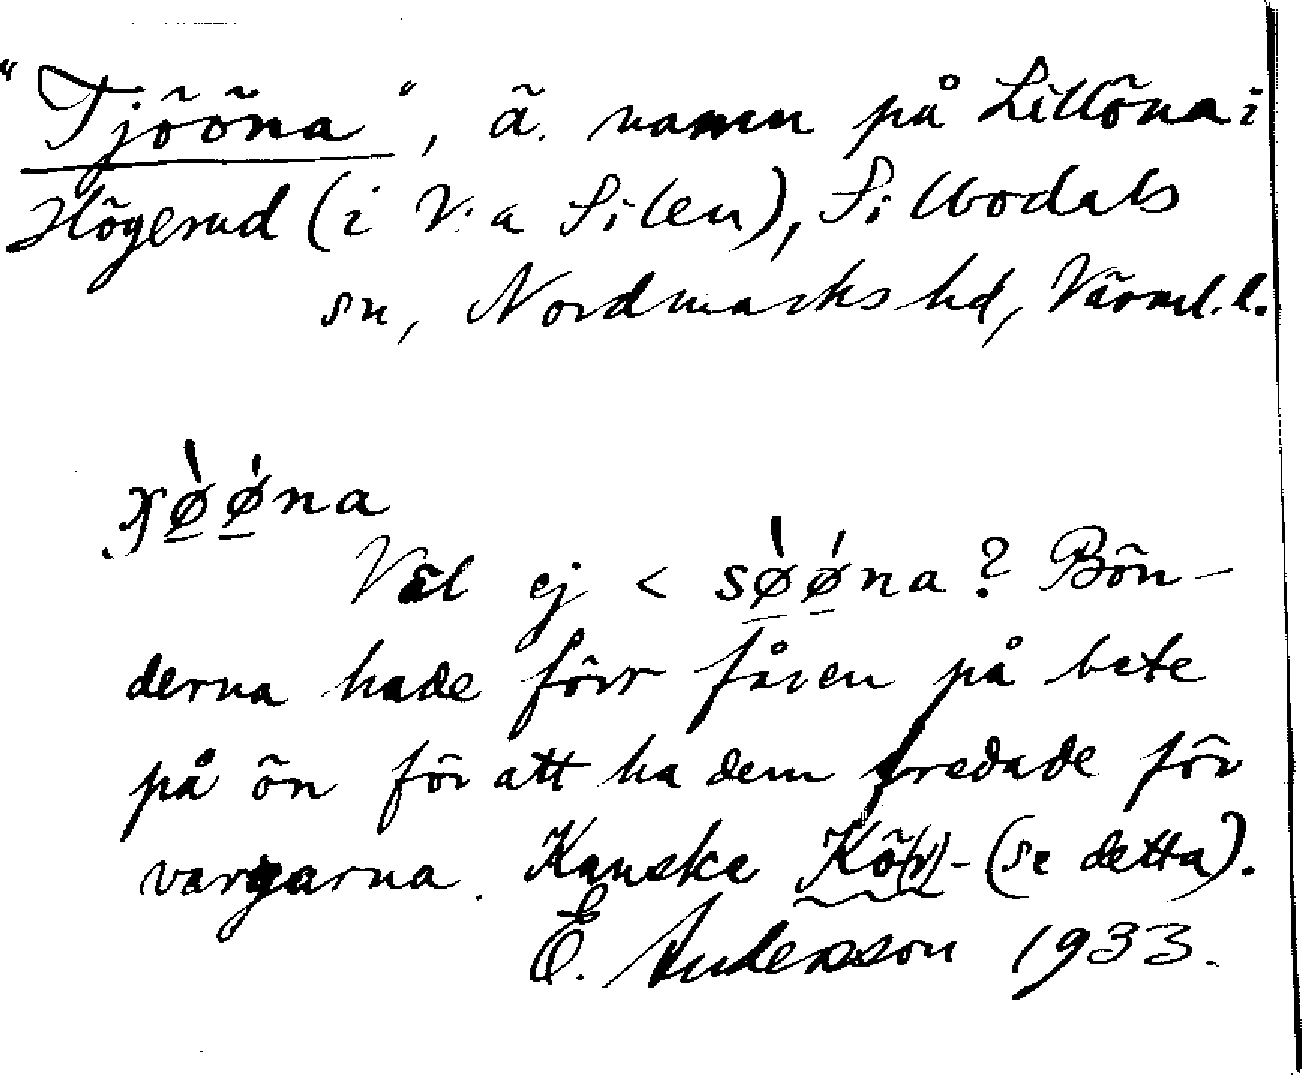 "Tjööna", ä. namn på Lillöna i
Högerud (i V:a Silen), Sillbodals
sn, Nordmarks hd, Värml. l.
ø̀ǿna
Väl ej < sø̀ǿna? Bön-
derna hade förr fåren på bete
på ön för att ha dem fredade för
vargarna. Kanske Kö(r)- (se detta).
E. Andersson 1933.